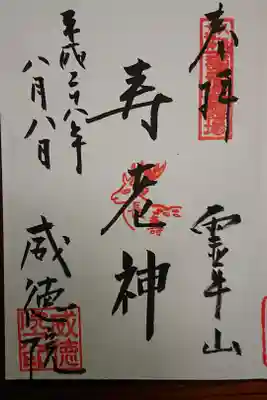 奉拝
霊牛山
寿老神
平成二十八年
八月八日
威徳院